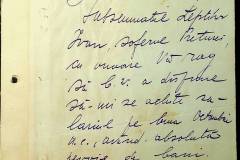 Subsemnatul Leptin
Ioan, șoferul Preturei
cu onoare Vă rog
să b.v. a dispune
să-mi se achite sa-
lariul pe luna Octombrie
a.c., având absoluta
nevoie de bani.